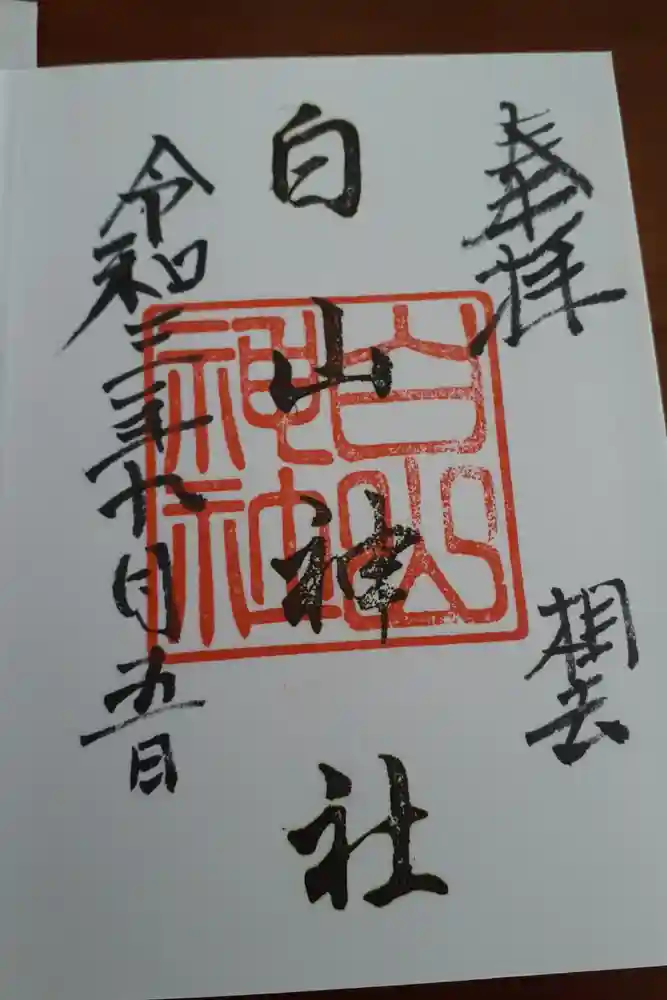 奉拝
相去
白山神社
白山
神社
令和三年十月五日